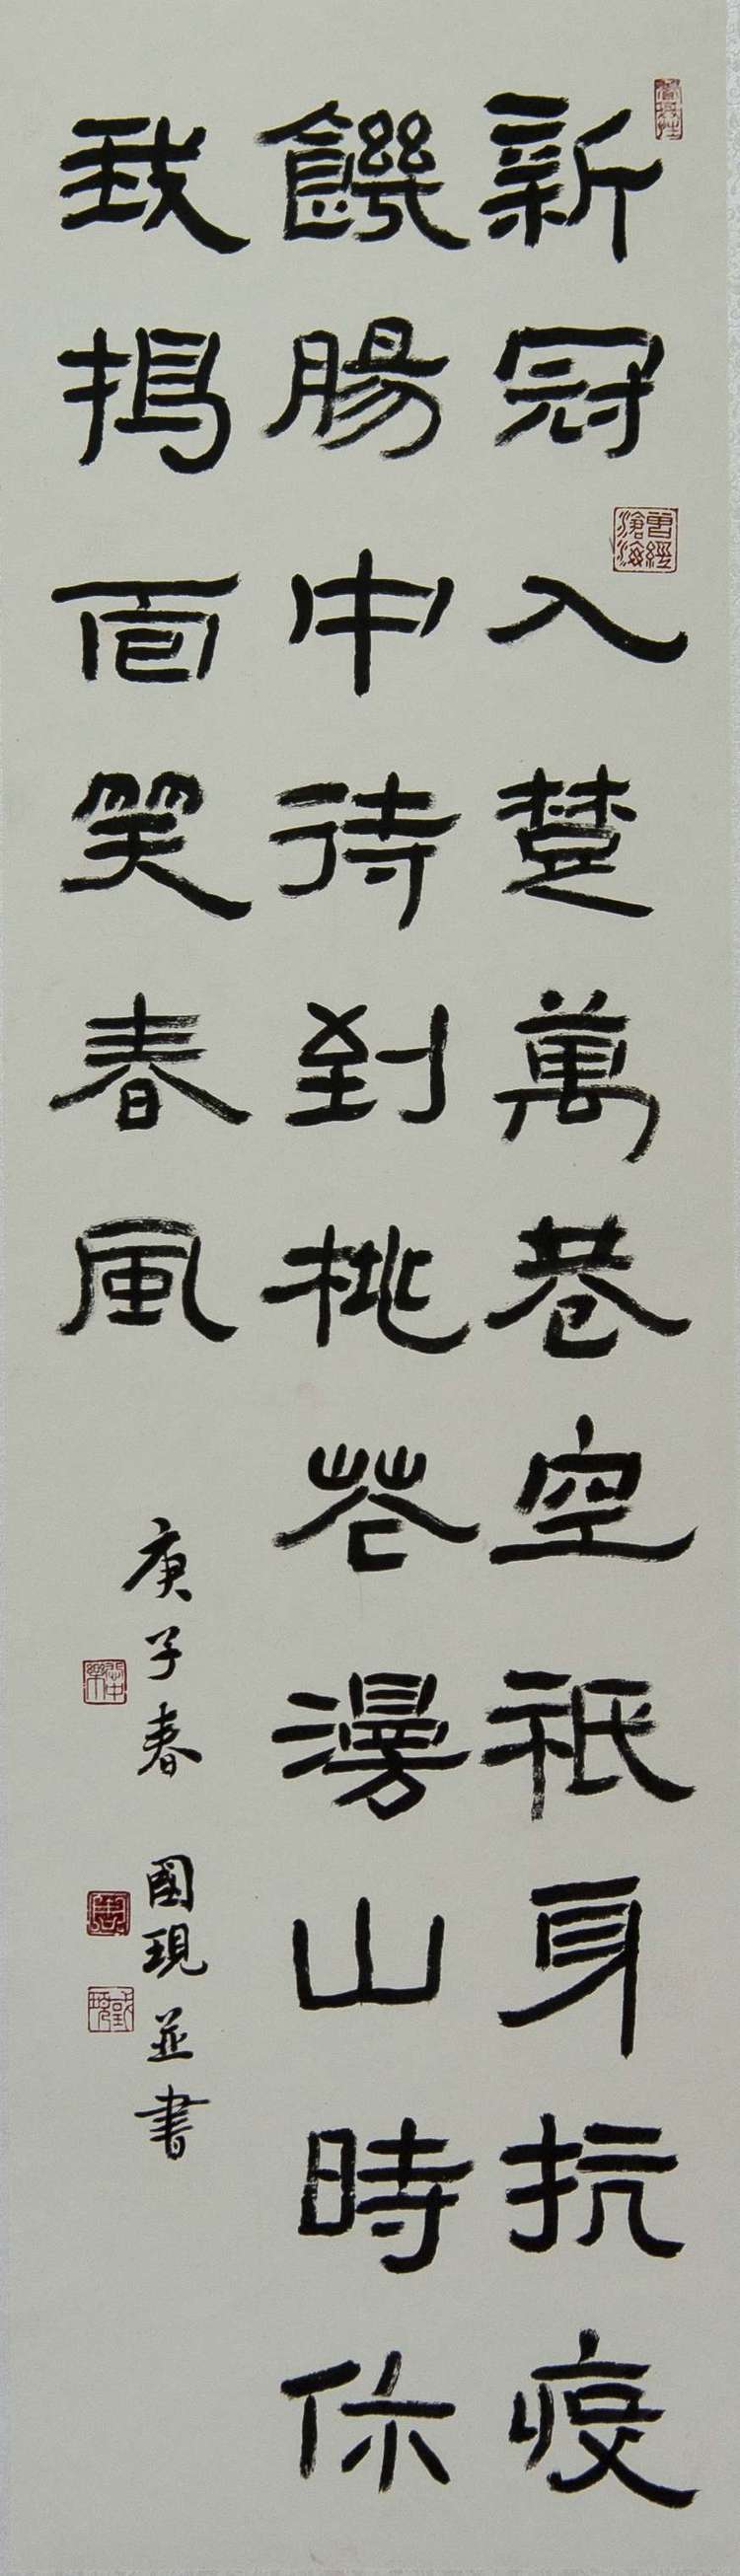 新冠入楚萬巷空祇身抗疫
饑腸中待到桃花漫山時你
我面笑春風
庚子春 國現並書
曾經滄海